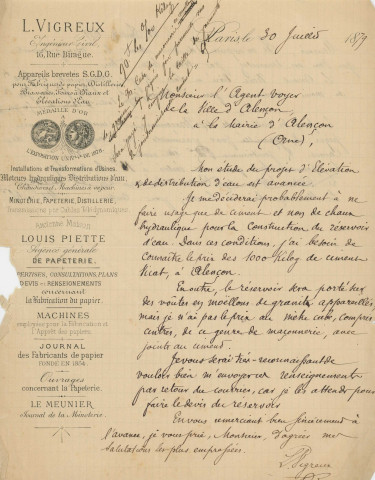 L. VIGREUX
Ingénieur Civil
16, Rue Birague.
Appareils brevetés S.G.D.G.
pour Fabriques de papier, Distilleries
Élévations d'Eau
MÉDAILLE D'OR
L'EXPOSITION UNIVlle DE 1878
Installations et Transformations d'Usines.
Moteurs hydrauliques, Distributions d'eau,
Chaudières, Machines à vapeur
MINOTERIE, PAPETERIE, DISTILLERIE,
ANCIENNE MAISON
LOUIS PIETTE
Agence générale
DE PAPETERIE.
EXPERTISES, CONSULTATIONS, PLANS
DEVIS ET RENSEIGNEMENTS
concernant
la Fabrication du papier.
MACHINES
employées pour la Fabrication et
l'Apprêt des papiers.
JOURNAL
des Fabricants de papier
FONDÉ EN 1854.
Ouvrages
concernant la Papeterie.
LE MEUNIER
Journal de la Minoterie.
Paris le 30 Juillet 1879
Monsieur l'Agent voyer
de la Ville d'Alençon
à la Mairie d'Alençon
(Orne),
Mon étude du projet d'Elévation
& de distribution d'eau est avancée.
Je me déciderai probablement à ne
faire usage que de ciment et non de chaux
hydraulique pour la construction du réservoir
d'eau. Dans ces conditions, j'ai besoin de
connaître le prix des 1000 Kilog de ciment
Vicat, à Alençon.
En outre, le réservoir sera porté sur
des voûtes en moëllons de granite appareillés,
mais je n'ai pas le prix au mètre cube, compris
cintres, de ce genre de maçonnerie, avec
joints au ciment.
Je vous serai très-reconnaissant de
vouloir bien m'envoyer ces renseignements
par retour du courrier, car je les attends pour
faire le devis du réservoir.
En vous remerciant bien sincèrement à
l'avance, je vous prie, Monsieur, d'agréer mes
salutations les plus empressées.
L. Vigreux